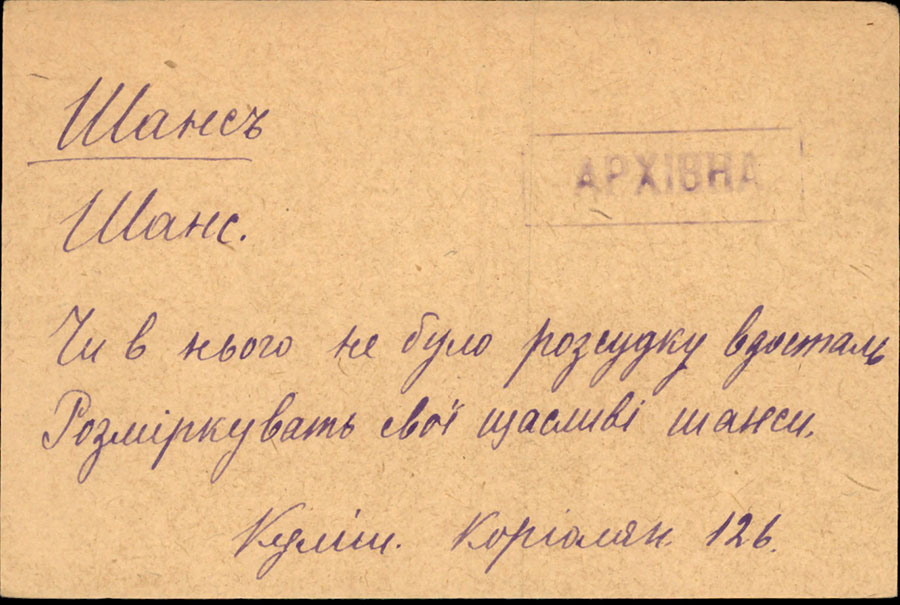 Шансъ
АРХІВНА
Шанс.
Чи в нього не було розсудку вдосталь
Розміркувать свої щасливі шанси.
Куліш. Коріолян. 126.